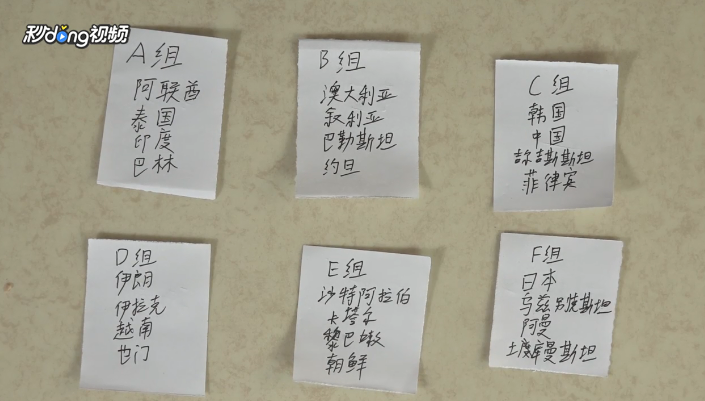 秒dong视频
A组
阿联酋
泰国
印度
巴林
B组
澳大利亚
叙利亚
巴勒斯坦
约旦
C组
韩国
中国
吉尔吉斯斯坦
菲律宾
D组
伊朗
伊拉克
越南
也门
E组
沙特阿拉伯
卡塔尔
黎巴嫩
朝鲜
F组
日本
乌兹别克斯坦
阿曼
土库曼斯坦